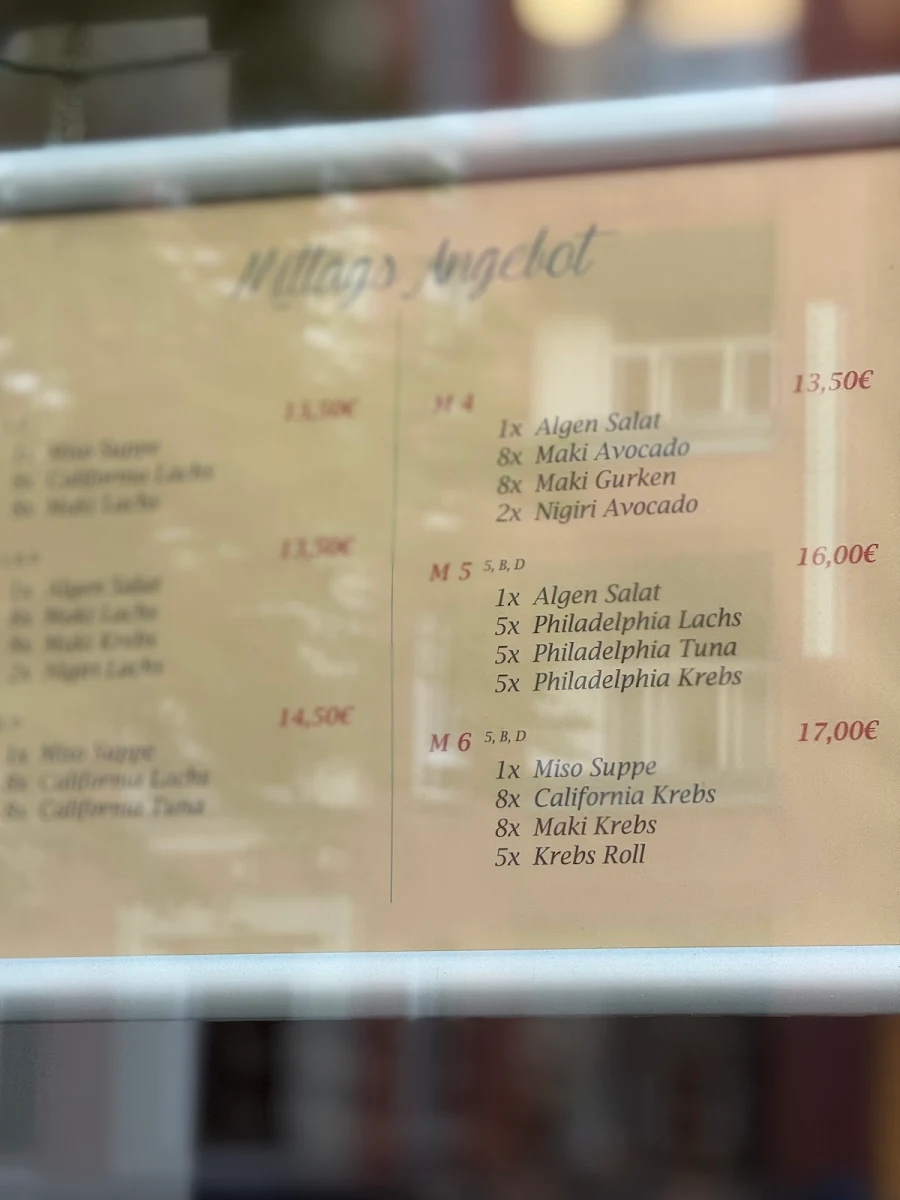 Mittags Angebot
13,50€
Miso Suppe
California Lachs
Maki Lachs
13,50€
Algen Salat
Maki Lachs
Maki Krebs
Nigiri Lachs
14,50€
1x Miso Suppe
8x California Lachs
8x California Tuna
M 4 13,50€
1x Algen Salat
8x Maki Avocado
8x Maki Gurken
2x Nigiri Avocado
M 5 5, B, D 16,00€
1x Algen Salat
5x Philadelphia Lachs
5x Philadelphia Tuna
5x Philadelphia Krebs
M 6 5, B, D 17,00€
1x Miso Suppe
8x California Krebs
8x Maki Krebs
5x Krebs Roll